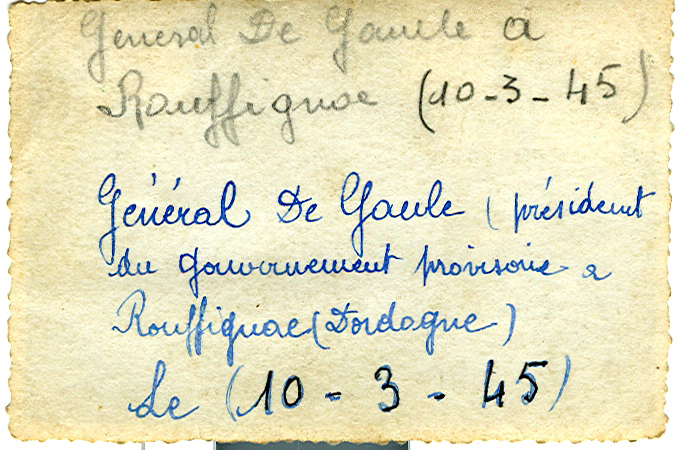 General De Gaule a
Rouffignac (10-3-45)
Général De Gaule (président
du gouvernement provisoire a
Rouffignac (Dordogne)
Le (10-3-45)